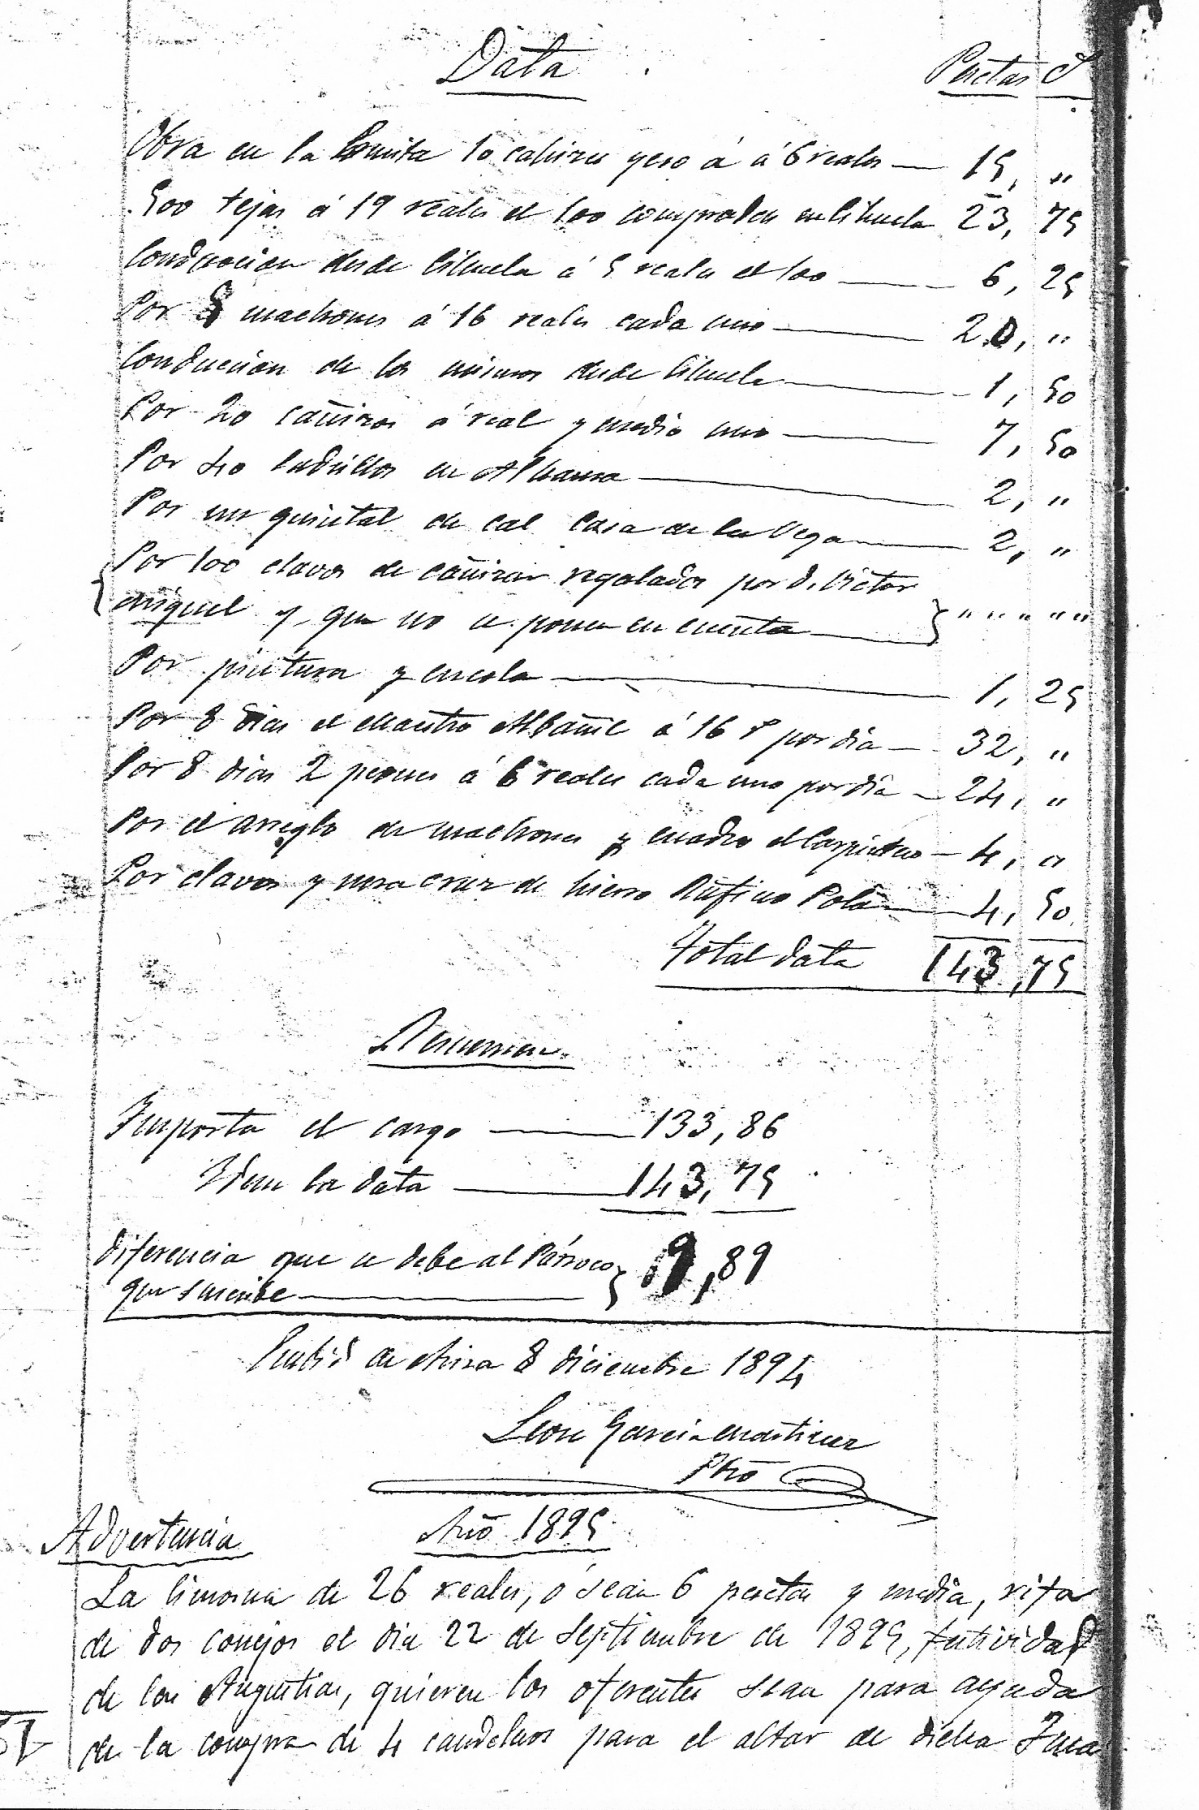 Data
Pesetas Cs
Obra en la Ermita 10 cahices yeso á á 6 reales — 15, "
500 tejas á 19 reales el 100 compradas en Cihuela 23, 75
Conduccion desde Cihuela á 5 reales el 100 — 6, 25
Por 5 machones á 16 reales cada uno — 20, "
Conducción de los mismos desde Cihuela — 1, 50
Por 20 cañizos á real y medio uno — 7, 50
Por 40 ladrillos en Alhama — 2, "
Por un quintal de cal Casa de la Vega — 2, "
Por 100 clavos de cañizar regalados por D. Victor
Miguel y que no se ponen en cuenta — " " " " "
Por pintura y escola — 1, 25
Por 8 dias el Maestro Albañil á 16 r por dia — 32, "
Por 8 dias 2 peones á 6 reales cada uno por dia — 24, "
Por el arreglo de machones y cuadro el Carpintero — 4, "
Por clavos y una cruz de hierro Rufino Pola — 4, 50
Total data 143,75
Resumen
Importa el cargo — 133,86
Idem la data — 143,75
Diferencia que se debe al Párroco
que suscribe — 9,89
Embid de Ariza 8 diciembre 1894
Leon Garcia Martinez
Pbro
Advertencia Año 1895
La limosna de 26 reales, ó sean 6 pesetas y media, rifa
de dos conejos el dia 22 de Septiembre de 1895, festividad
de las Angustias, quieren los oferentes sean para ayuda
de la compra de 4 candeleros para el altar de dicha Ima